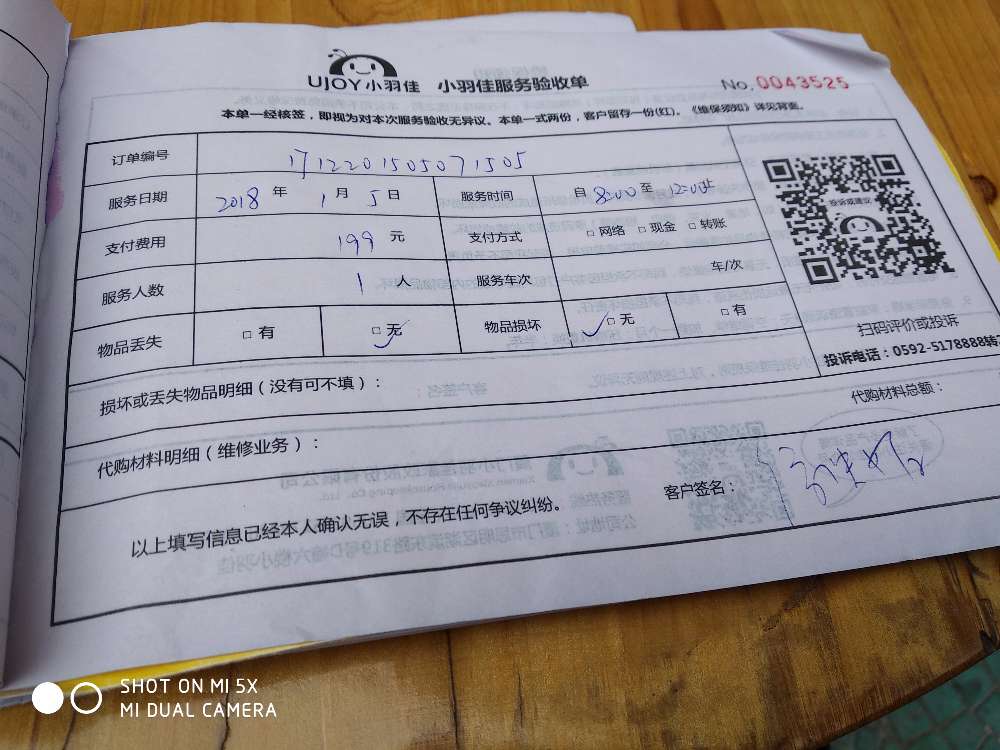 UJOY小羽佳 小羽佳服务验收单 No.0043525
本单一经核签，即视为对本次服务验收无异议。本单一式两份，客户留存一份(红)。《维保须知》详见背面。
订单编号 1712201505071505
服务日期 2018 年 1 月 5 日 服务时间 自 8:00 至 12:00 止
支付费用 199 元 支付方式 □ 网络 □ 现金 □ 转账
服务人数 1 人 服务车次 车/次
物品丢失 □ 有 □ 无 物品损坏 □ 无 □ 有
投诉或建议
扫码评价或投诉
投诉电话：0592-5178888转
损坏或丢失物品明细（没有可不填）：
代购材料明细（维修业务）：
代购材料总额：
以上填写信息已经本人确认无误，不存在任何争议纠纷。
客户签名：
SHOT ON MI 5X
MI DUAL CAMERA